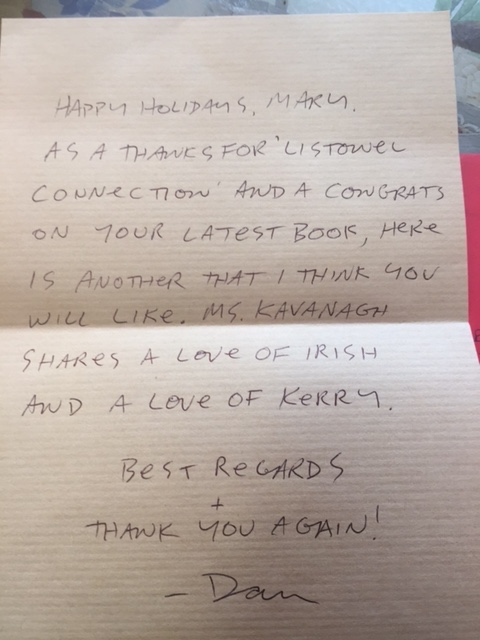 HAPPY HOLIDAYS, MARY.
AS A THANKS FOR 'LISTOWEL
CONNECTION' AND A CONGRATS
ON YOUR LATEST BOOK, HERE
IS ANOTHER THAT I THINK YOU
WILL LIKE. MS. KAVANAGH
SHARES A LOVE OF IRISH
AND A LOVE OF KERRY.
BEST REGARDS
+
THANK YOU AGAIN!
- Dan